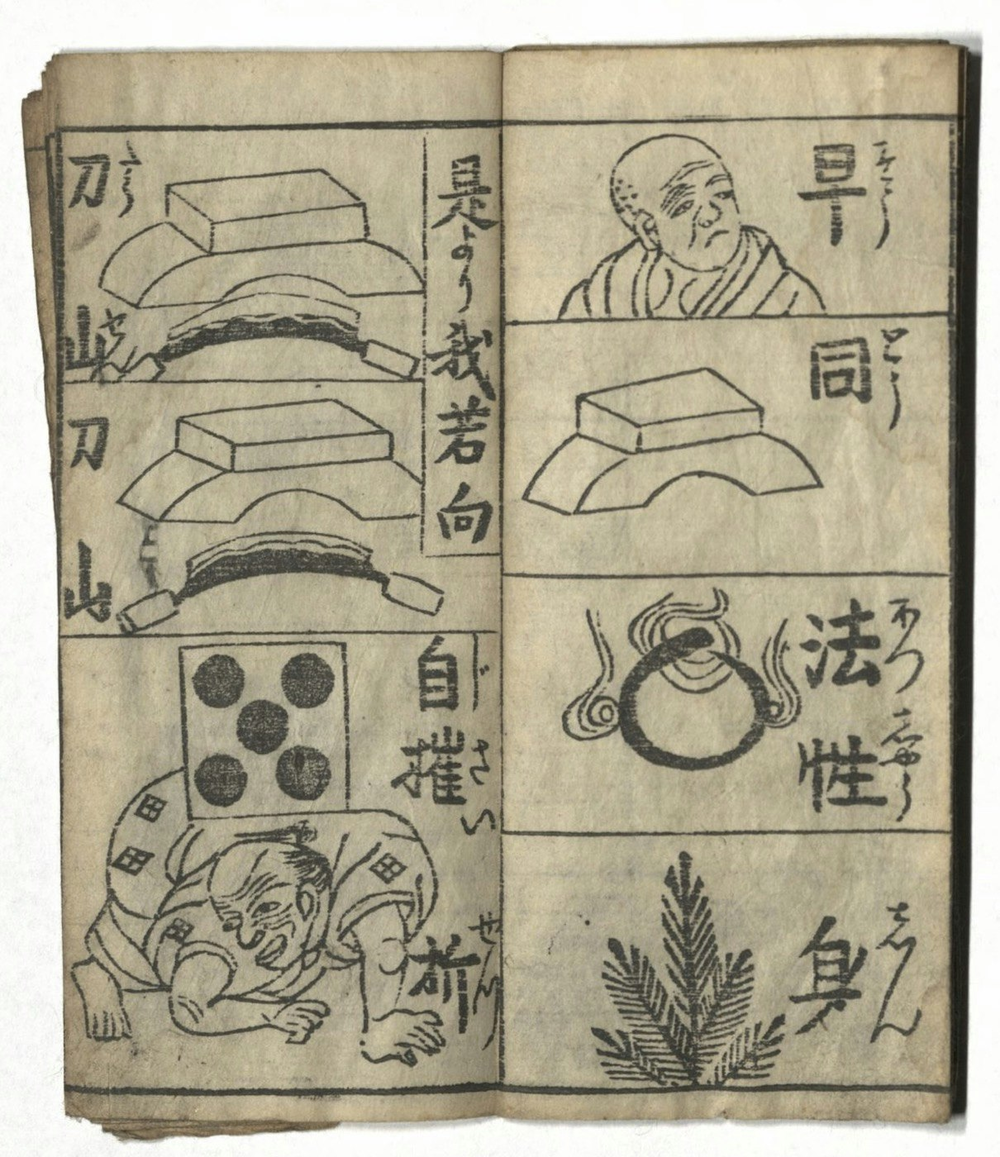 早 そう
同 どう
法性 ほつしやう
身 しん
是より我若向
刀山 たうせん
刀山
自摧折 じさいせつ